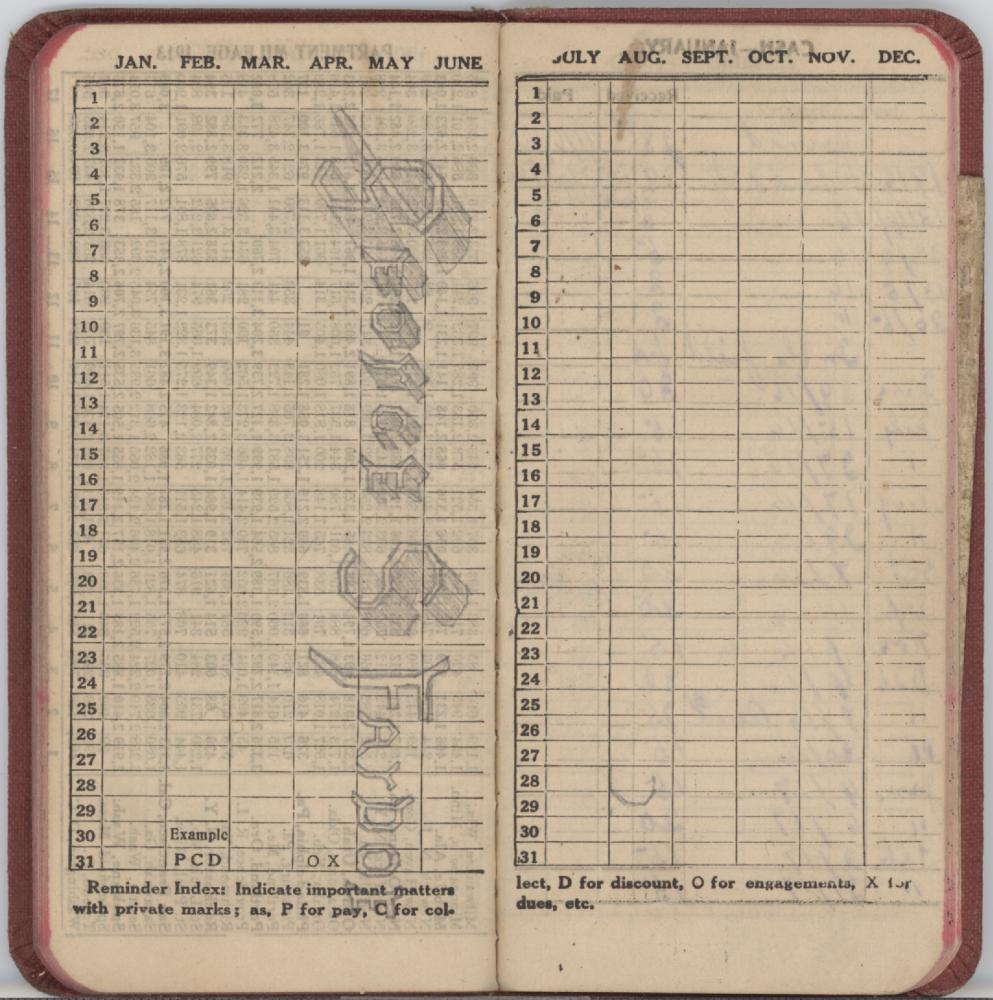 JAN. FEB. MAR. APR. MAY JUNE
1
2
3
4
5
6
7
8
9
10
11
12
13
14
15
16
17
18
19
20
21
22
23
24
25
26
27
28
29
30 Example
31 P C D O X
GEORGE
FARDOE
Reminder Index: Indicate important matters
with private marks; as, P for pay, C for col-
JULY AUG. SEPT. OCT. NOV. DEC.
1
2
3
4
5
6
7
8
9
10
11
12
13
14
15
16
17
18
19
20
21
22
23
24
25
26
27
28
29
30
31
lect, D for discount, O for engagements, X for
dues, etc.